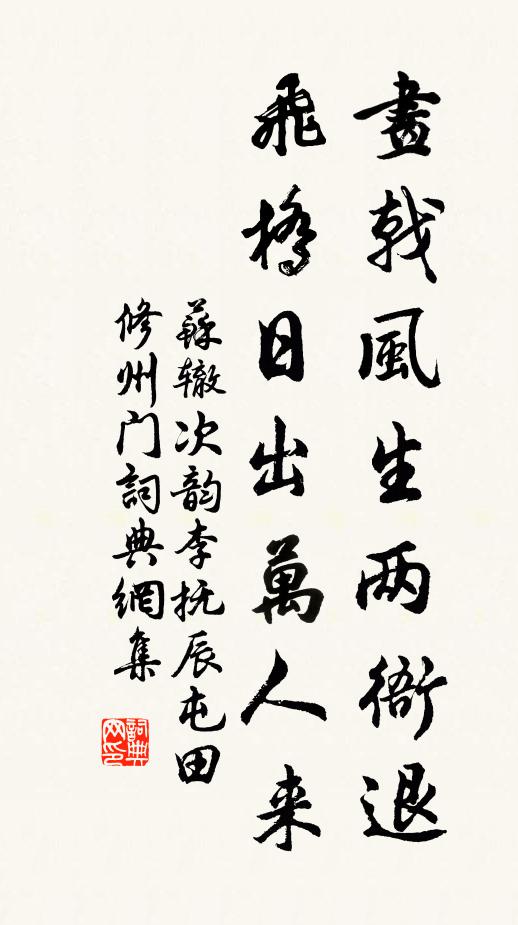 畫戟風生两衙退
飛橋日出萬人来
蘇辙次韵李抚辰屯田
修州门詞典網集
詞典网印